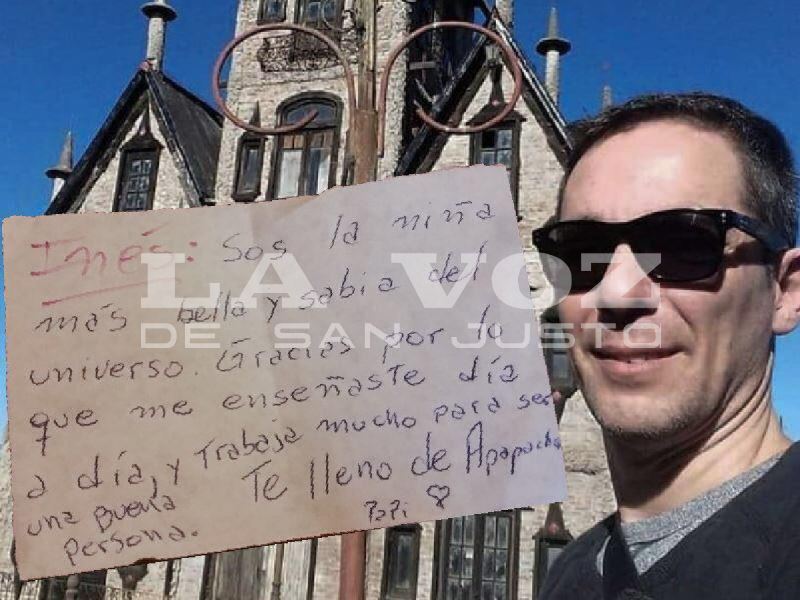 Inés: Sos la niña
más bella y sabia del
universo. Gracias por lo
que me enseñaste día
a día, y Trabaja mucho para ser
una buena
persona.
Te lleno de Apapachos
Papi
LA VOZ
DE SAN JUSTO